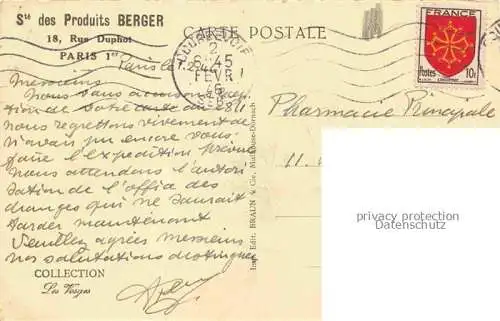 Sté des Produits BERGER
18, Rue Duphot
PARIS 1er
CARTE POSTALE
2
6-45
FEVR
46
FRANCE
Postes
10c
Paris
Messieurs
Nous vous accusons
tion de votre carte du 28/1
nous regrettons vivement de
n'avoir pu encore vous
faire l'expédition prévue
nous attendons l'autori
sation de l'office des
changes qui ne saurait
tarder maintenant
Veuillez agréer Messieurs
nos salutations distinguées
Pharmacie Principale
11.
privacy protection
Datenschutz
Imp. Edit. BRAUN & Cie, Mulhouse-Dornach
COLLECTION
Les Vosges